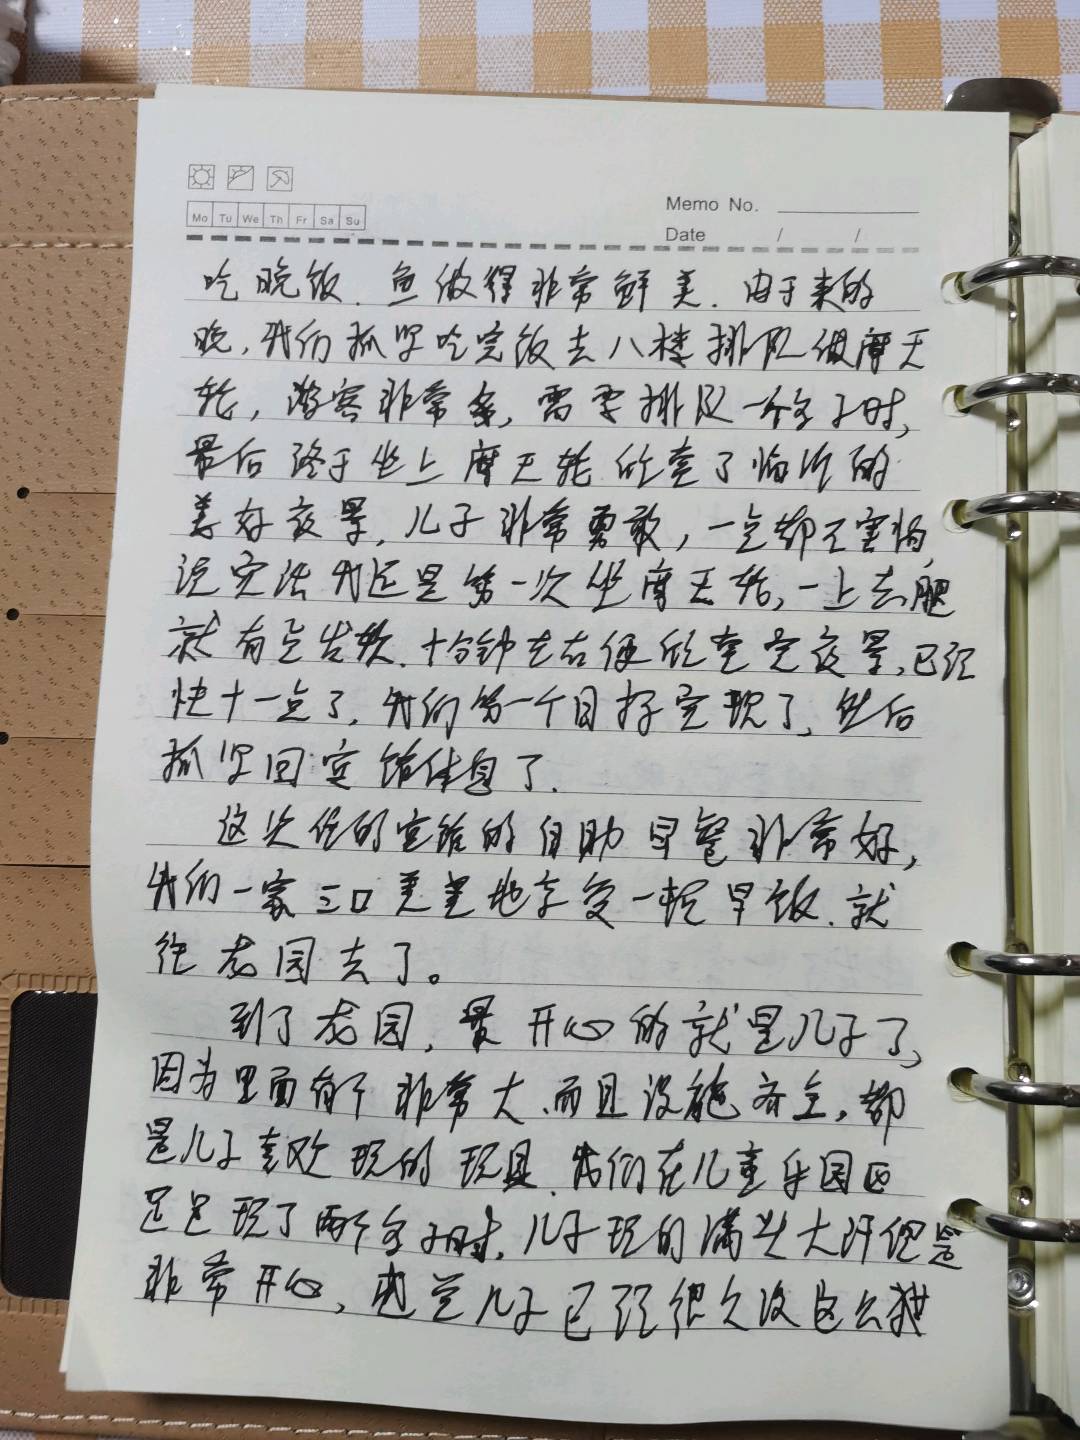 Memo No.
Mo Tu We Th Fr Sa Su
Date / /
吃晚饭. 鱼做得非常鲜美. 由于来的
晚, 我们抓紧吃完饭去八楼排队做摩天
轮, 游客非常多, 需要排队一个多小时,
最后终于坐上摩天轮欣赏了临沂的
美好夜景, 儿子非常勇敢, 一点都不害怕,
说实话我还是第一次坐摩天轮, 一上去腿
就有点发软. 十分钟左右便欣赏完夜景, 已经
快十一点了, 我们第一个目标实现了, 然后
抓紧回宾馆休息了.
这次住的宾馆的自助早餐非常好,
我们一家三口美美地享受一顿早饭. 就
往龙园去了。
到了龙园, 最开心的就是儿子了,
因为里面有个非常大、而且设施齐全, 都
是儿子喜欢玩的玩具. 我们在儿童乐园区
足足玩了两个多小时, 儿子玩的满头大汗但是
非常开心, 感觉儿子已经很久没这么